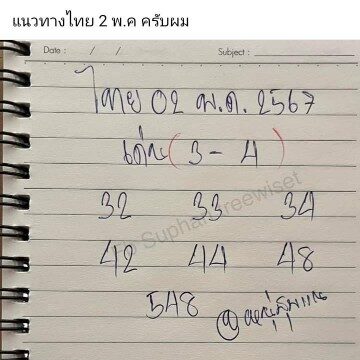 แนวทางไทย 2 พ.ค ครับผม
Date : / / Subject :
ไทย 02 พ.ค. 2567
เด่น (3 - 4)
32 33 34
42 44 48
548